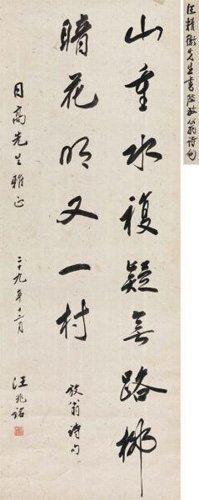 汪精衛先生書陸放翁詩句
山重水複疑無路柳
暗花明又一村
放翁詩句
日高先生雅正
二十九年十二月
汪兆銘